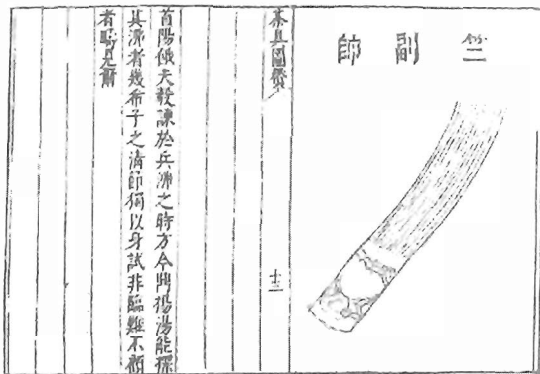 竺副帥
茶具圖贊
首陽餓夫毅諫於兵沸之時方今鼎揚湯能探
其沸者幾希子之清節獨以身試非臨難不顧
者疇見爾